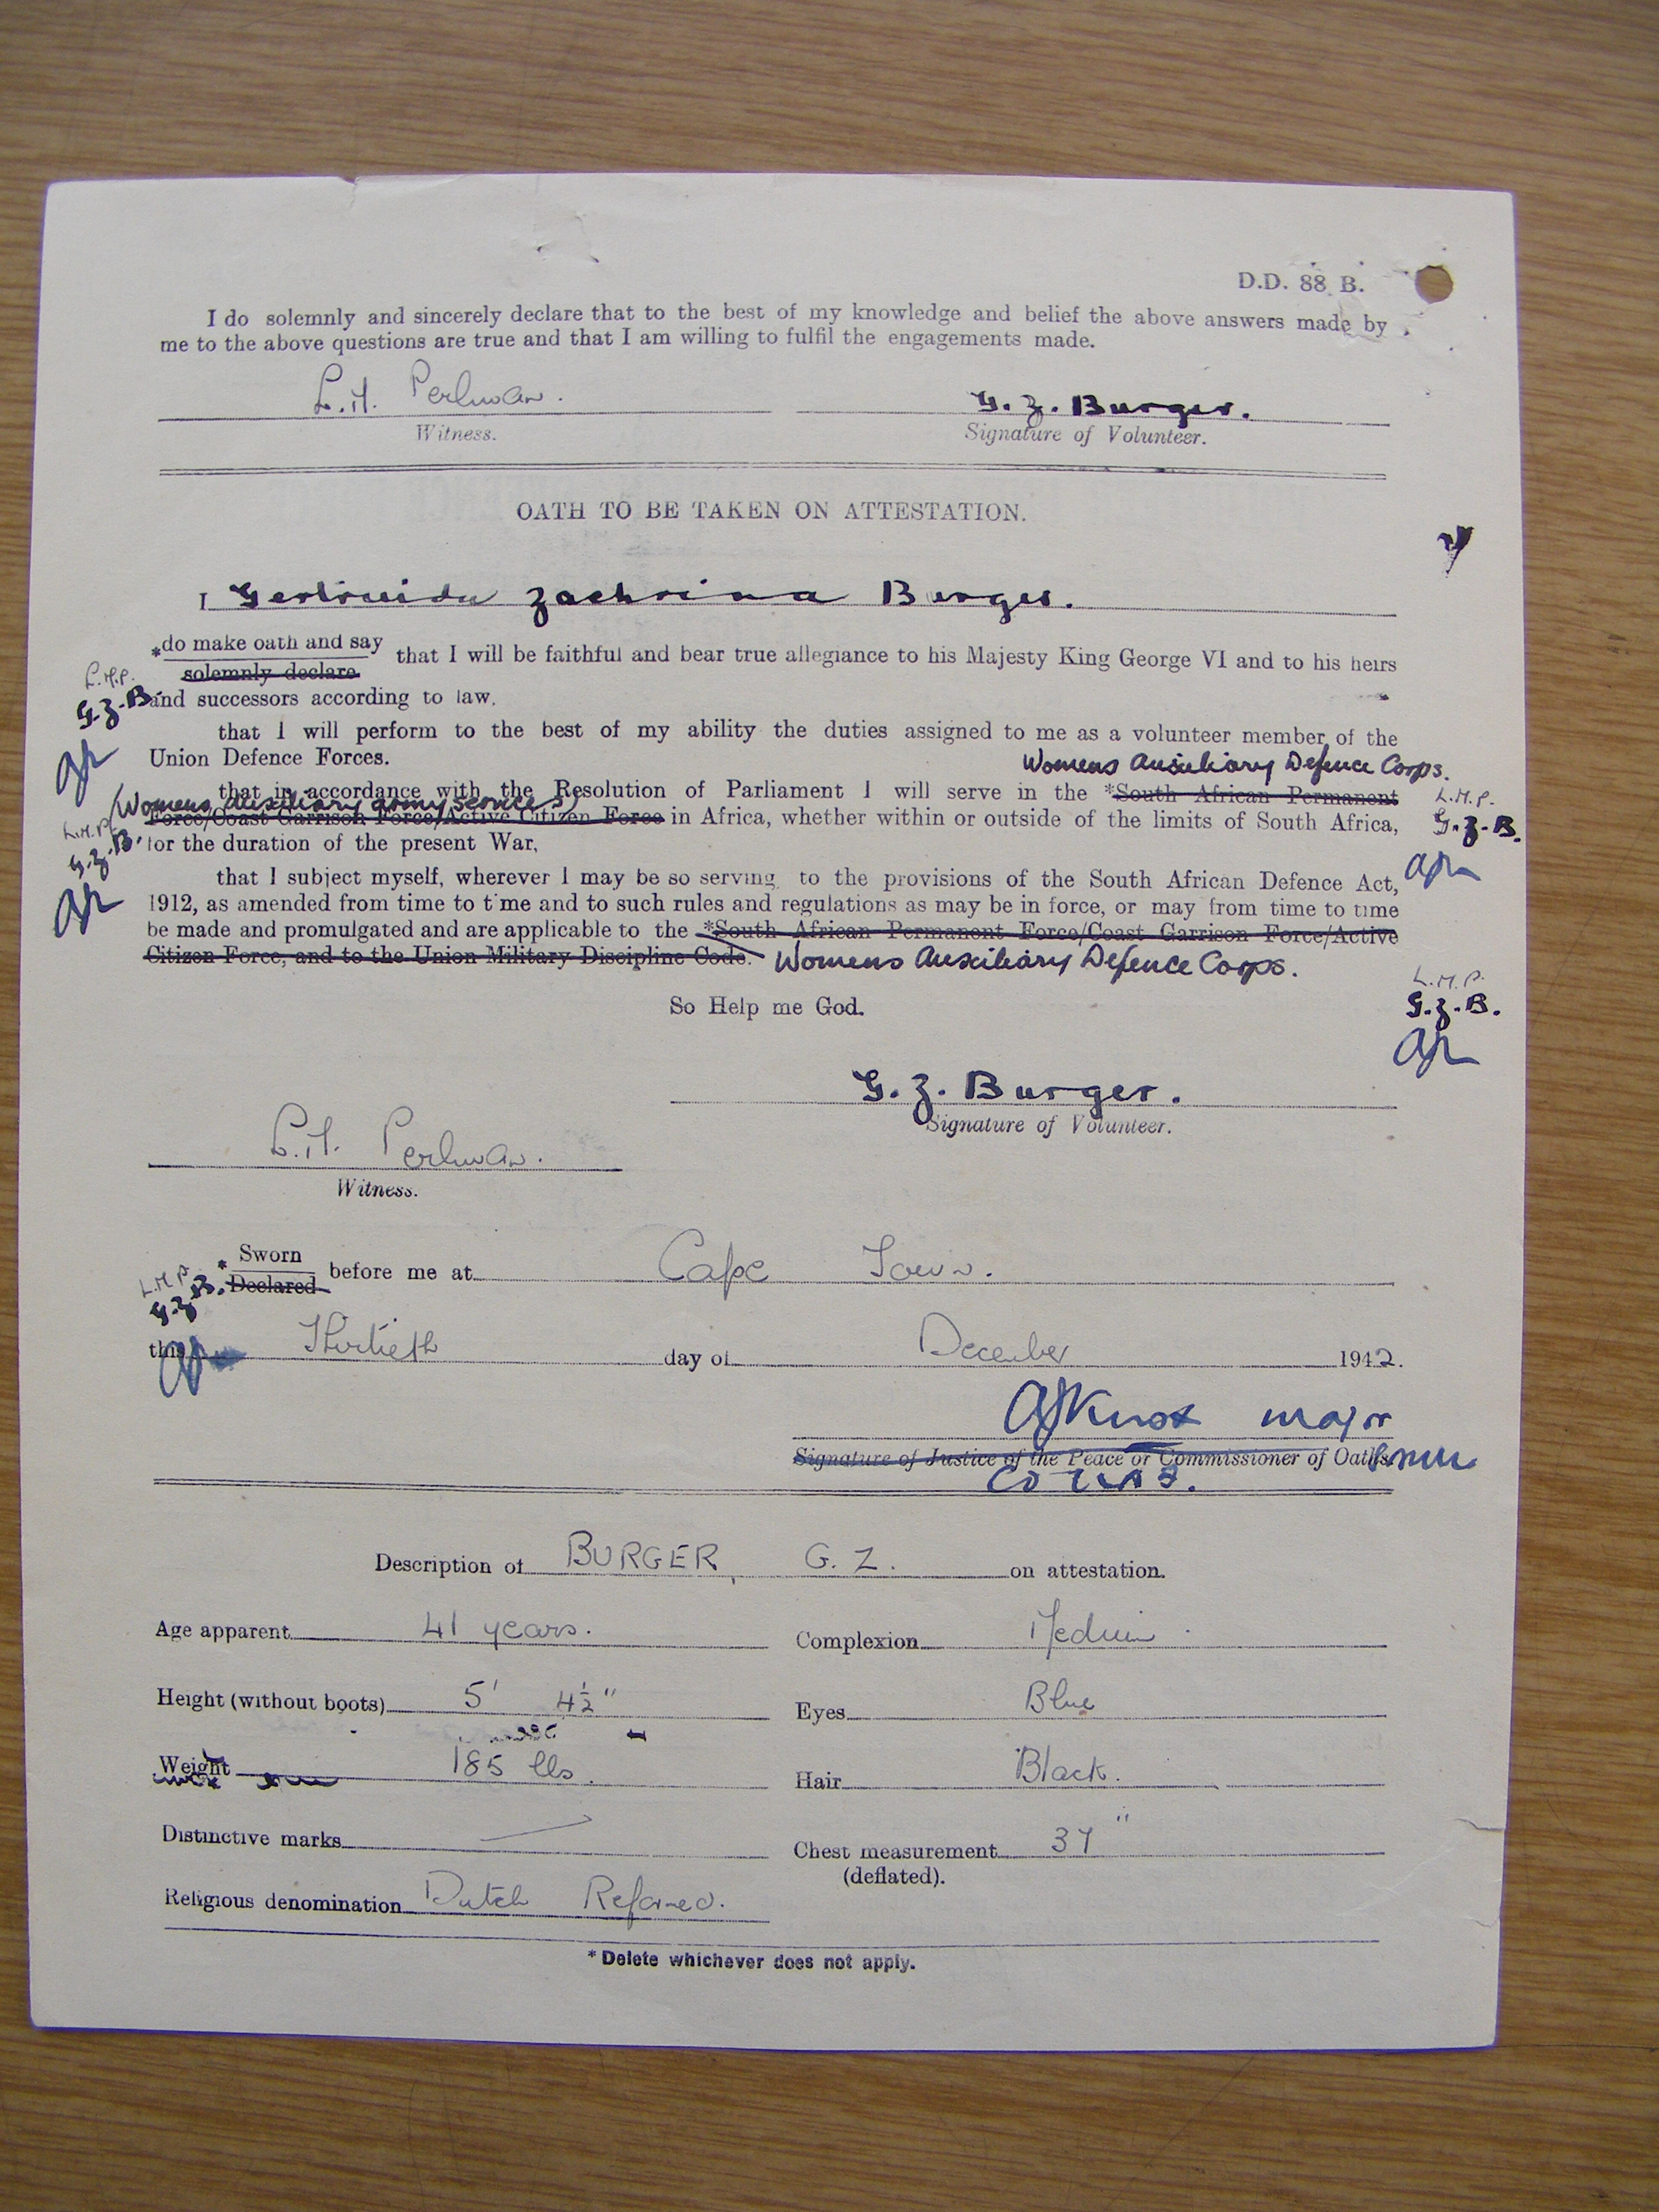 D.D. 88 B.
I do solemnly and sincerely declare that to the best of my knowledge and belief the above answers made by
me to the above questions are true and that I am willing to fulfil the engagements made.
L.M. Perlman. G. Z. Burger.
Witness. Signature of Volunteer.
OATH TO BE TAKEN ON ATTESTATION.
I Gertruida Zachrina Burger.
*do make oath and say
solemnly declare that I will be faithful and bear true allegiance to his Majesty King George VI and to his heirs
L.M.P.
G.Z.B. and successors according to law.
that I will perform to the best of my ability the duties assigned to me as a volunteer member of the
Union Defence Forces.
Womens Auxiliary Defence Corps.
that in accordance with the Resolution of Parliament I will serve in the *South African Permanent L.M.P.
(Womens Auxiliary Army Services)
L.M.P. Force/Coast Garrison Force/Active Citizen Force in Africa, whether within or outside of the limits of South Africa, G.Z.B.
G.Z.B. for the duration of the present War.
that I subject myself, wherever I may be so serving, to the provisions of the South African Defence Act,
1912, as amended from time to time and to such rules and regulations as may be in force, or may from time to time
be made and promulgated and are applicable to the *South African Permanent Force/Coast Garrison Force/Active
Citizen Force, and to the Union Military Discipline Code. Womens Auxiliary Defence Corps.
L.M.P.
So Help me God. G.Z.B.
G. Z. Burger.
Signature of Volunteer.
L.M. Perlman.
Witness.
* Sworn
L.M.P. Declared before me at Cape Town.
G.Z.B.
this Thirtieth day of December 1942.
Knox Major
Signature of Justice of the Peace or Commissioner of Oaths.
Description of BURGER, G. Z. on attestation.
Age apparent 41 years. Complexion Medium.
Height (without boots) 5' 4½" Eyes Blue
Weight 185 lbs. Hair Black.
Distinctive marks Chest measurement 37"
(deflated).
Religious denomination Dutch Reformed.
* Delete whichever does not apply.